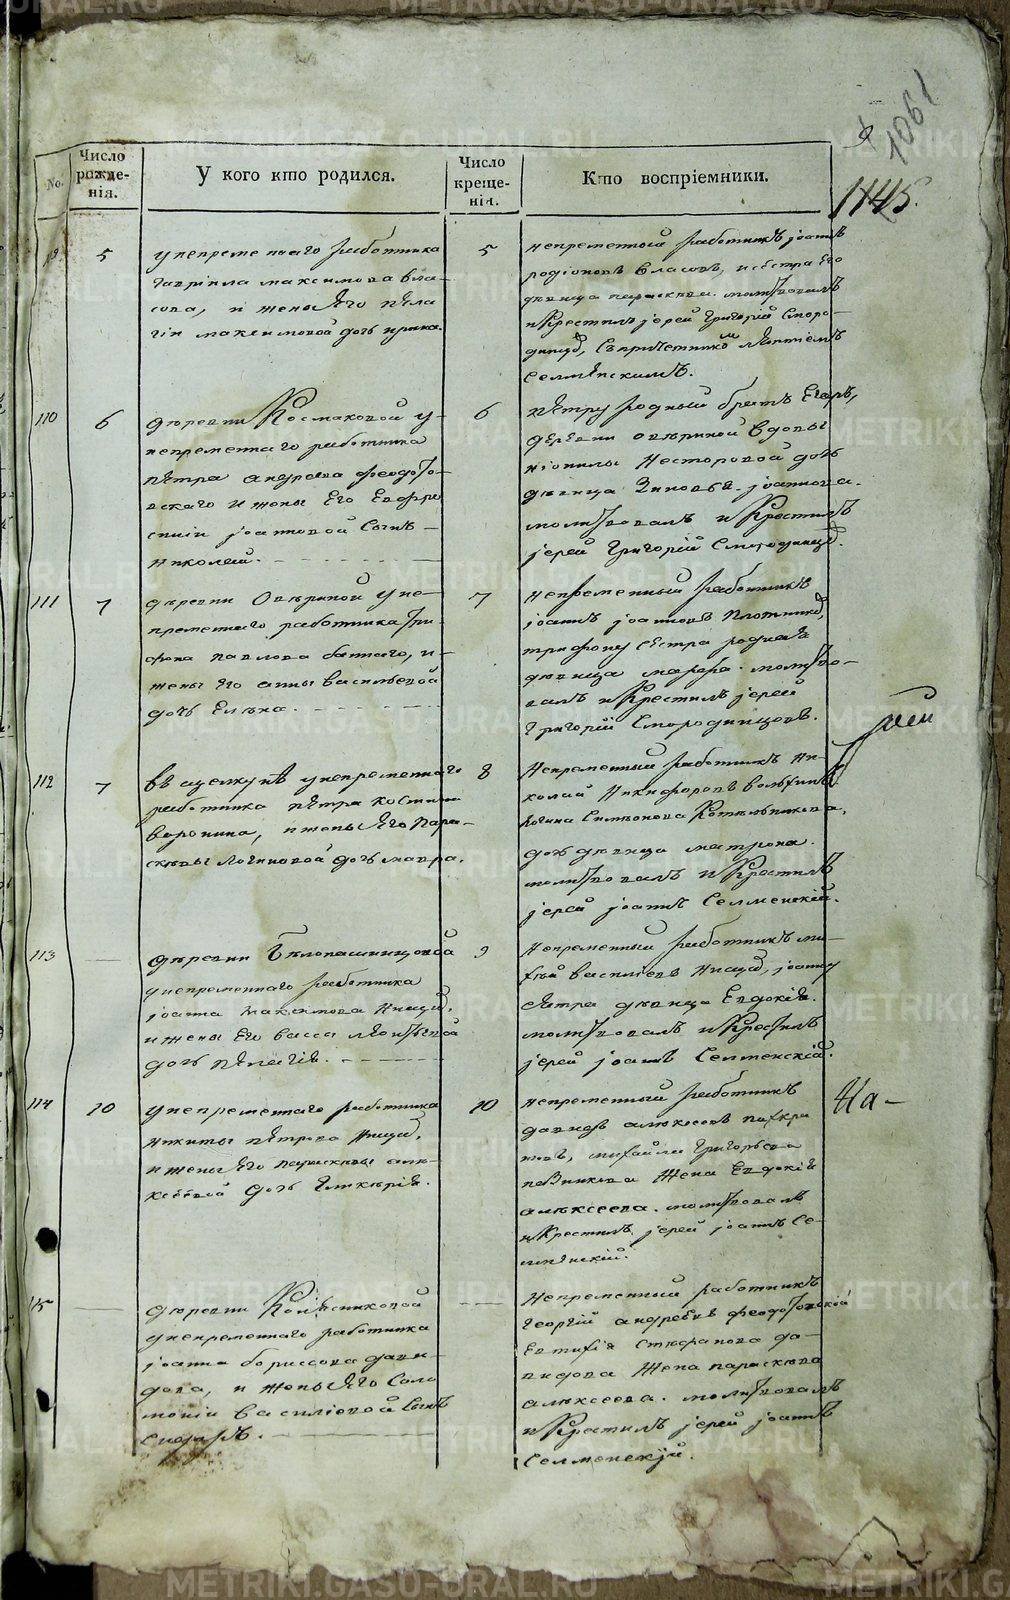 1061
1145.
No.
Число рожденія.
У кого кто родился.
Число крещенія.
Кто воспріемники.
5
у непременнаго работника
Гавріила максимова вла-
сова, и жены Его пела
гіи максимовой дочь ирина.
5
непременный работникъ іоаннъ
родіоновъ власовъ, и сестра Его
дѣвица параскева. молитвовалъ
и Крестилъ іерей Григорій Сморо-
динцовъ, съ причетникомъ
Селменскимъ.
110
6
деревни Космаковой у
непременнаго работника
петра андреева феодото-
вскаго и жены Его Евфро
синіи іоанновой Сынъ
николай.
6
петру родный братъ Егоръ,
деревни овериной вдовы
Несторовой дочь
дѣвица Зиновья іоаннова.
молитвовалъ и Крестилъ
іерей Григорій Смородинцовъ.
111
7
деревни Овериной у не-
пременнаго работника три-
фона павлова и
жены Его анны васильевой
дочь Елена.
7
непременный работникъ
іоаннъ іоанновъ плотниковъ,
трифону сестра родная
дѣвица марфа. молитво-
валъ и Крестилъ іерей
Григорій Смородинцовъ.
112
7
въ щелкунѣ у непременнаго
работника петра костина
воронина, и жены Его пара-
скевы логиновой дочь мавра.
8
Непременный работникъ ни-
колай Никифоровъ
логина Симеонова Котельникова,
дочь дѣвица матрона.
молитвовалъ и Крестилъ
іерей іоаннъ Селменскій.
113
деревни Белопашинцовой
у непременнаго работника
іоанна максимова Ницы,
и жены Его вассы леонтьевой
дочь пелагія.
9
Непременный работникъ ми-
хей василіевъ Ницы, іоанну
сестра дѣвица Евдокія.
молитвовалъ и Крестилъ
іерей іоаннъ Селменскій.
114
10
у непременнаго работника
никиты петрова Ницы,
и жены Его параскевы але-
ксеевой дочь Гликерія.
10
непременный работникъ
давидъ алексеевъ панкра
товъ, михайла Григорьева
жена Евдокія
алексеева. молитвовалъ
и Крестилъ іерей іоаннъ Се-
лменскій.
На-
115
деревни Колясниковой
у непременнаго работника
іоанна борисова дави-
дова, и жены Его Соло
моніи василіевой Сынъ
непременный работникъ
георгій андреевъ феодотовской
Евтихія стефанова да-
видова жена параскева
алексеева. молитвовалъ
и Крестилъ іерей іоаннъ
Селменскій.
METRIKI.GASO-URAL.RU